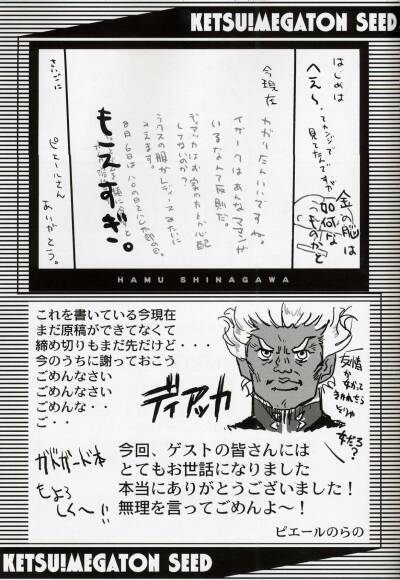 KETSU!MEGATON SEED
はじめは
へえ〜、てカンジで
見てたんですが
金の脳は
如何な
ものかと
今現在
わかりたいいですね。
イザークはあんなママンが
いるなんて反則だ。
ディアッカはお家の方とか心配
してないのか?
ラクスの服がレディースみたいに
見えます。
もえすぎ。
さいごに
ピエールさん
ありがとう。
HAMU SHINAGAWA
これを書いている今現在
まだ原稿ができてなくて
締め切りもまだ先だけど・・・
今のうちに謝っておこう
ごめんなさい
ごめんなさい
ごめんな・・
ご・・
ディアッカ
友情
女だろ?
ガドガード本
もよろ
しく〜!!
今回、ゲストの皆さんには
とてもお世話になりました
本当にありがとうございました!
無理を言ってごめんよ〜!
ピエールのらの
KETSU!MEGATON SEED